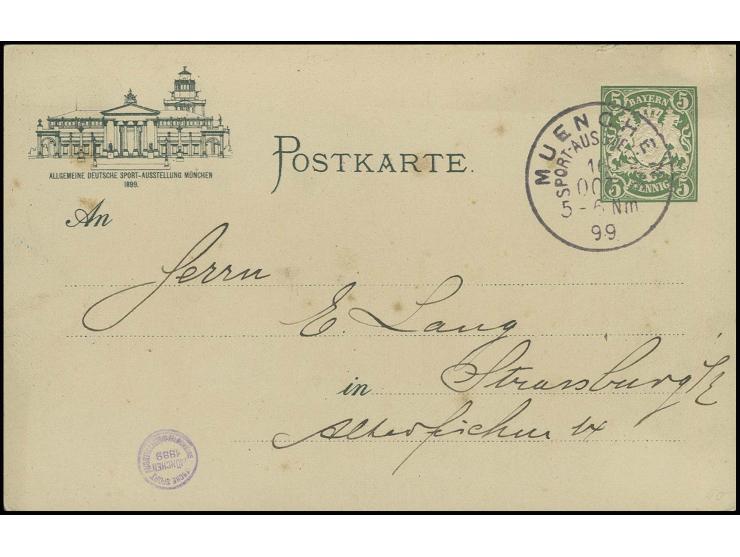 ALLGEMEINE DEUTSCHE SPORT-AUSSTELLUNG MÜNCHEN
1899.
POSTKARTE.
5 BAYERN 5
5 PFENNIG 5
MUENCHEN
SPORT-AUSST
OCT
5-6 Nm
99
An
Herrn
E. Lang
in Strassburg i/E
MÜNCHEN
1899